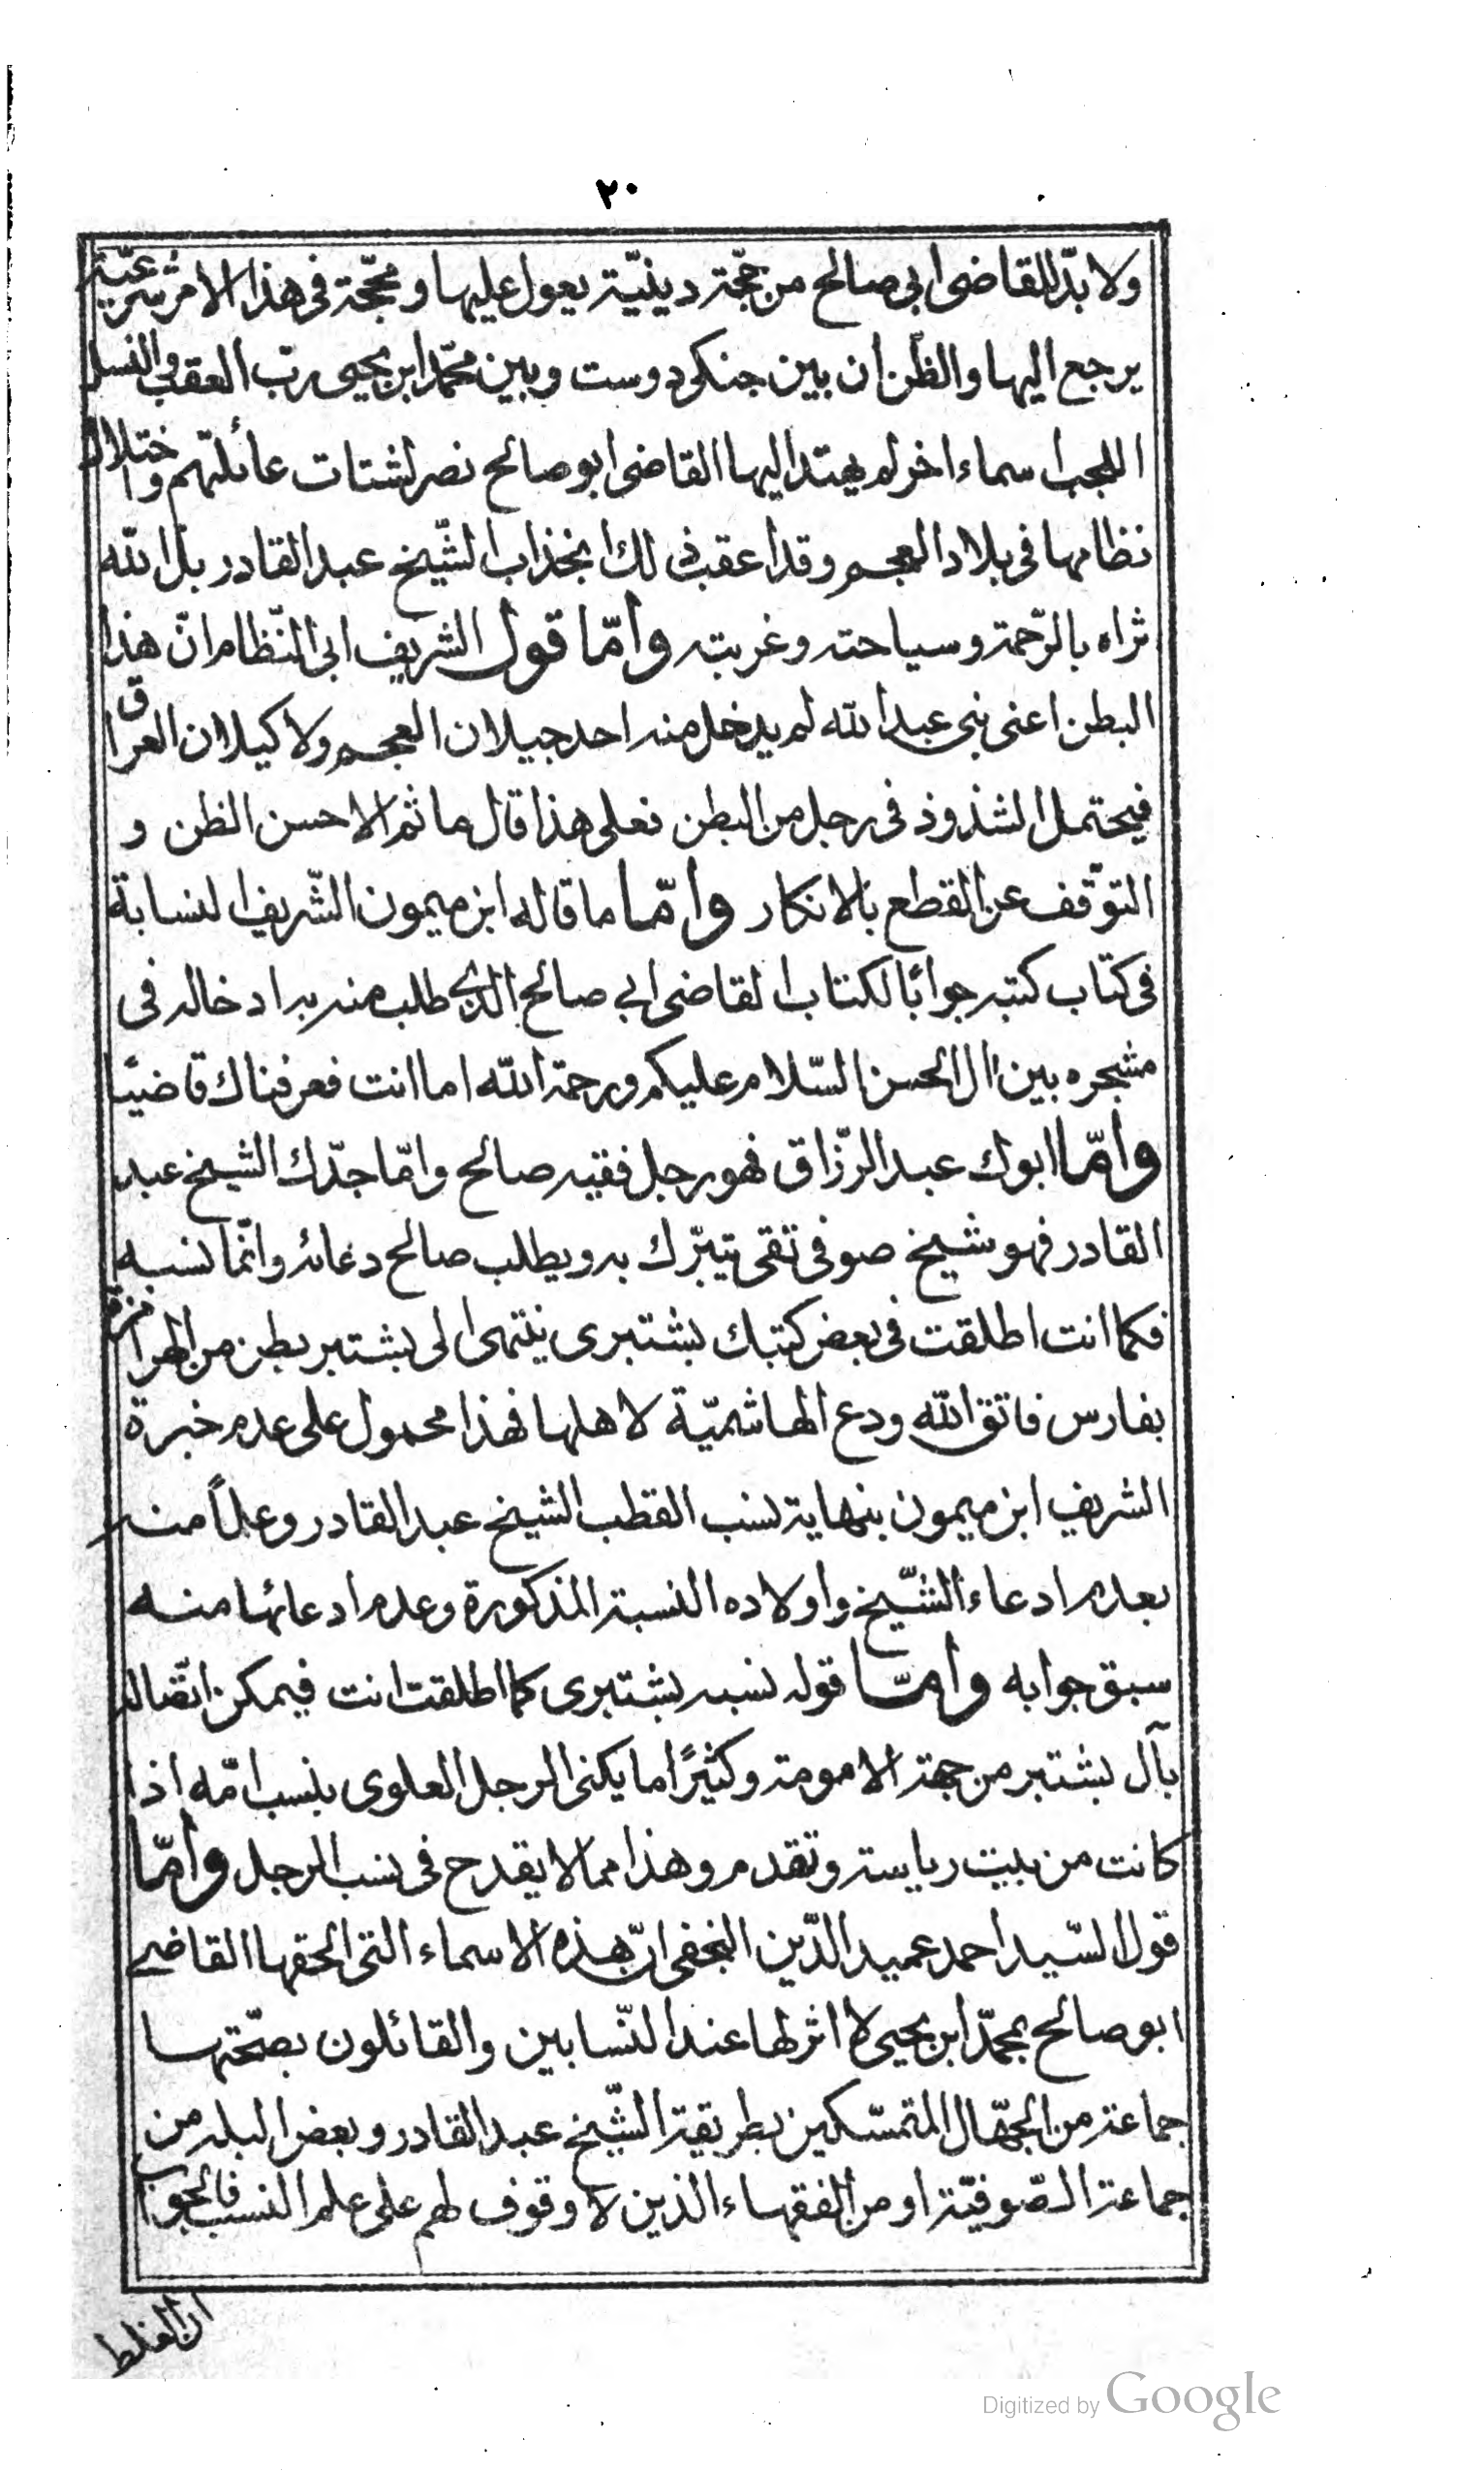 ٢٠
ولا بدّ للقاضى ابى صالح من حجّة دينيّة يعول عليها ومحجّة فى هذا الامر شرعيّة
يرجع اليها والظّن ان بين جنكى دوست وبين محمّد ابن يحيى ربّ العقب والنسل
المعجب اسماء اخر لم يهتد اليها القاضى ابو صالح نصر لشتات عائلتهم واختلال
نظامها فى بلاد العجم وقد اعقب ذلك انجذاب الشّيخ عبد القادر بلّ الله
ثراه بالرّحمة وسياحته وغربته وامّا قول الشريف ابى النّظام انّ هذا
البطن اعنى بنى عبد الله لم يدخل منه احد جيلان العجم ولا كيلان العراق
فيحتمل الشذوذ فى رجل من البطن فعلى هذا قال ما ثم الا حسن الظن و
التوّقف عن القطع بالانكار وامّا ما قاله ابن ميمون الشّريف النسابة
فى كتاب كتبه جوابًا لكتاب القاضى ابى صالح الذى طلب منه به ادخاله فى
مشجره بين ال الحسن السّلام عليكم ورحمة الله اما انت فعرفناك قاضيًا
وامّا ابوك عبد الرّزاق فهو رجل فقيه صالح وامّا جدّك الشيخ عبد
القادر فهو شيخ صوفى تقى يتبرّك به ويطلب صالح دعائه وانّما نسبه
فكما انت اطلقت فى بعض كتبك بشتبرى ينتمى الى بشتبر بطن من الهرامزة
بفارس فاتق الله ودع الهاشميّة لاهلها فهذا محمول على عدم خبرة
الشريف ابن ميمون بنهاية نسب القطب الشيخ عبد القادر وعلمًا منه
بعدم ادعاء الشّيخ واولاده النسبة المذكورة وعدم ادعائها منه
سبق جوابه وامّا قوله نسبه بشتبرى كما اطلقت انت فيمكن اتّصاله
بآل بشتبر من جهة الامومة وكثيرًا ما يكنى الرجل العلوى بنسب امّه اذا
كانت من بيت رياسة وتقدم وهذا مما لا يقدح فى نسب الرجل وامّا
قول السّيد احمد عميد الدّين النجفى انّ هذه الاسماء التى الحقها القاضى
ابو صالح بمحمّد ابن يحيى لا اثر لها عند النّسابين والقائلون بصحّتها
جماعة من الجهّال المتمسّكين بطريقة الشّيخ عبد القادر وبعض البله من
جماعة الصّوفيّة او من الفقهاء الذين لا وقوف لهم على علم النسب فالجواب
ان الغلط
Digitized by Google